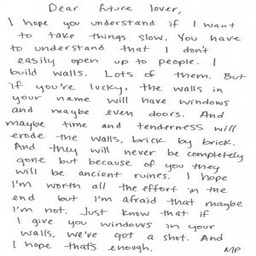 Dear future lover,
I hope you understand if I want
to take things slow. You have
to understand that I don't
easily open up to people. I
build walls. Lots of them. But
if you're lucky, the walls in
your name will have windows
and maybe even doors. And
maybe time and tenderness will
erode the walls, brick by brick.
And they will never be completely
gone but because of you they
will be ancient ruines. I hope
I'm worth all the effort in the
end but I'm afraid that maybe
I'm not. Just know that if
I give you windows in your
walls, we've got a shot. And
I hope that's enough. MP